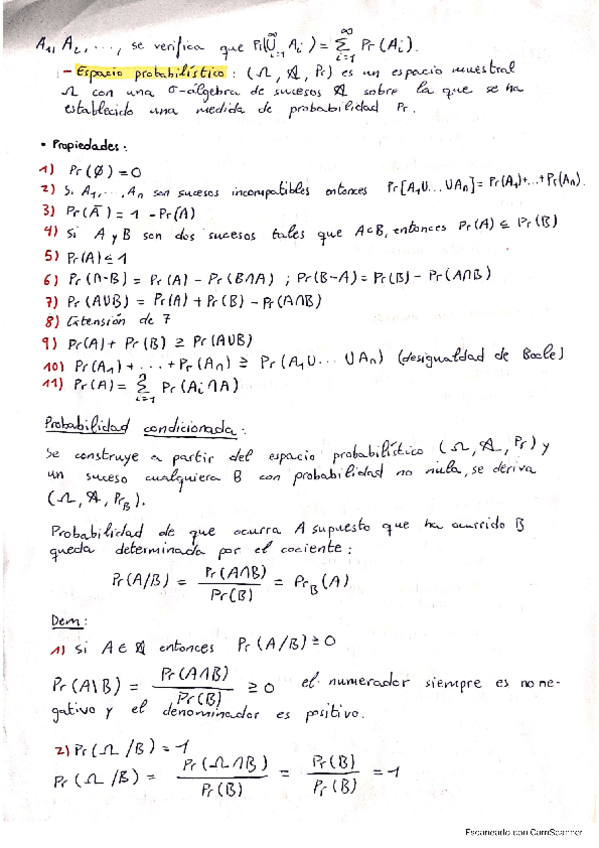 A₁, A₂, ..., se verifica que Pr(⋃_{i=1}^∞ Aᵢ) = ∑_{i=1}^∞ Pr(Aᵢ).
- Espacio probabilístico: (Ω, 𝒜, Pr) es un espacio muestral
Ω con una σ-álgebra de sucesos 𝒜 sobre la que se ha
establecido una medida de probabilidad Pr.
• Propiedades:
1) Pr(∅) = 0
2) Si A₁, ..., Aₙ son sucesos incompatibles entonces Pr[A₁∪...∪Aₙ] = Pr(A₁)+...+Pr(Aₙ).
3) Pr(Ā) = 1 - Pr(A)
4) Si A y B son dos sucesos tales que A⊂B, entonces Pr(A) ≤ Pr(B)
5) Pr(A) ≤ 1
6) Pr(A-B) = Pr(A) - Pr(B∩A) ; Pr(B-A) = Pr(B) - Pr(A∩B)
7) Pr(A∪B) = Pr(A) + Pr(B) - Pr(A∩B)
8) Extensión de 7
9) Pr(A) + Pr(B) ≥ Pr(A∪B)
10) Pr(A₁) + ... + Pr(Aₙ) ≥ Pr(A₁∪... ∪Aₙ) (desigualdad de Boole)
11) Pr(A) = ∑_{i=1}^n Pr(Aᵢ∩A)
Probabilidad condicionada:
Se construye a partir del espacio probabilístico (Ω, 𝒜, Pr) y
un suceso cualquiera B con probabilidad no nula, se deriva
(Ω, 𝒜, Pr_B).
Probabilidad de que ocurra A supuesto que ha ocurrido B
queda determinada por el cociente:
Pr(A/B) = Pr(A∩B) / Pr(B) = Pr_B(A)
Dem:
1) Si A ∈ 𝒜 entonces Pr(A/B) ≥ 0
Pr(A\B) = Pr(A∩B) / Pr(B) ≥ 0 el numerador siempre es no ne-
gativo y el denominador es positivo.
2) Pr(Ω/B) = 1
Pr(Ω/B) = Pr(Ω∩B) / Pr(B) = Pr(B) / Pr(B) = 1
Escaneado con CamScanner